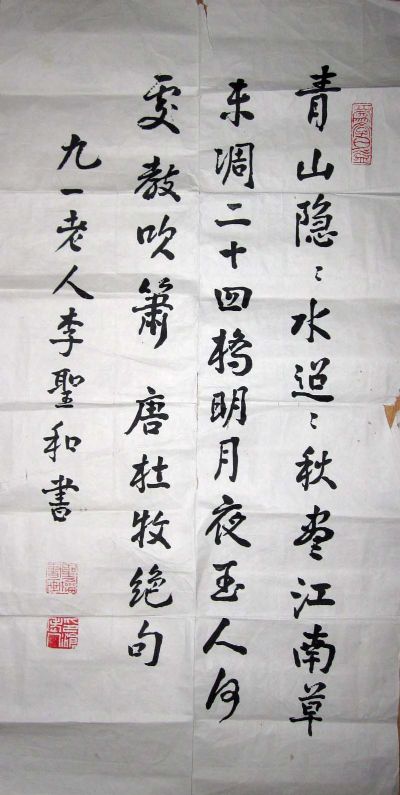 青山隐〻水迢〻秋尽江南草
未凋二十四橋明月夜玉人何
处教吹箫 唐杜牧绝句
九一老人李聖和書